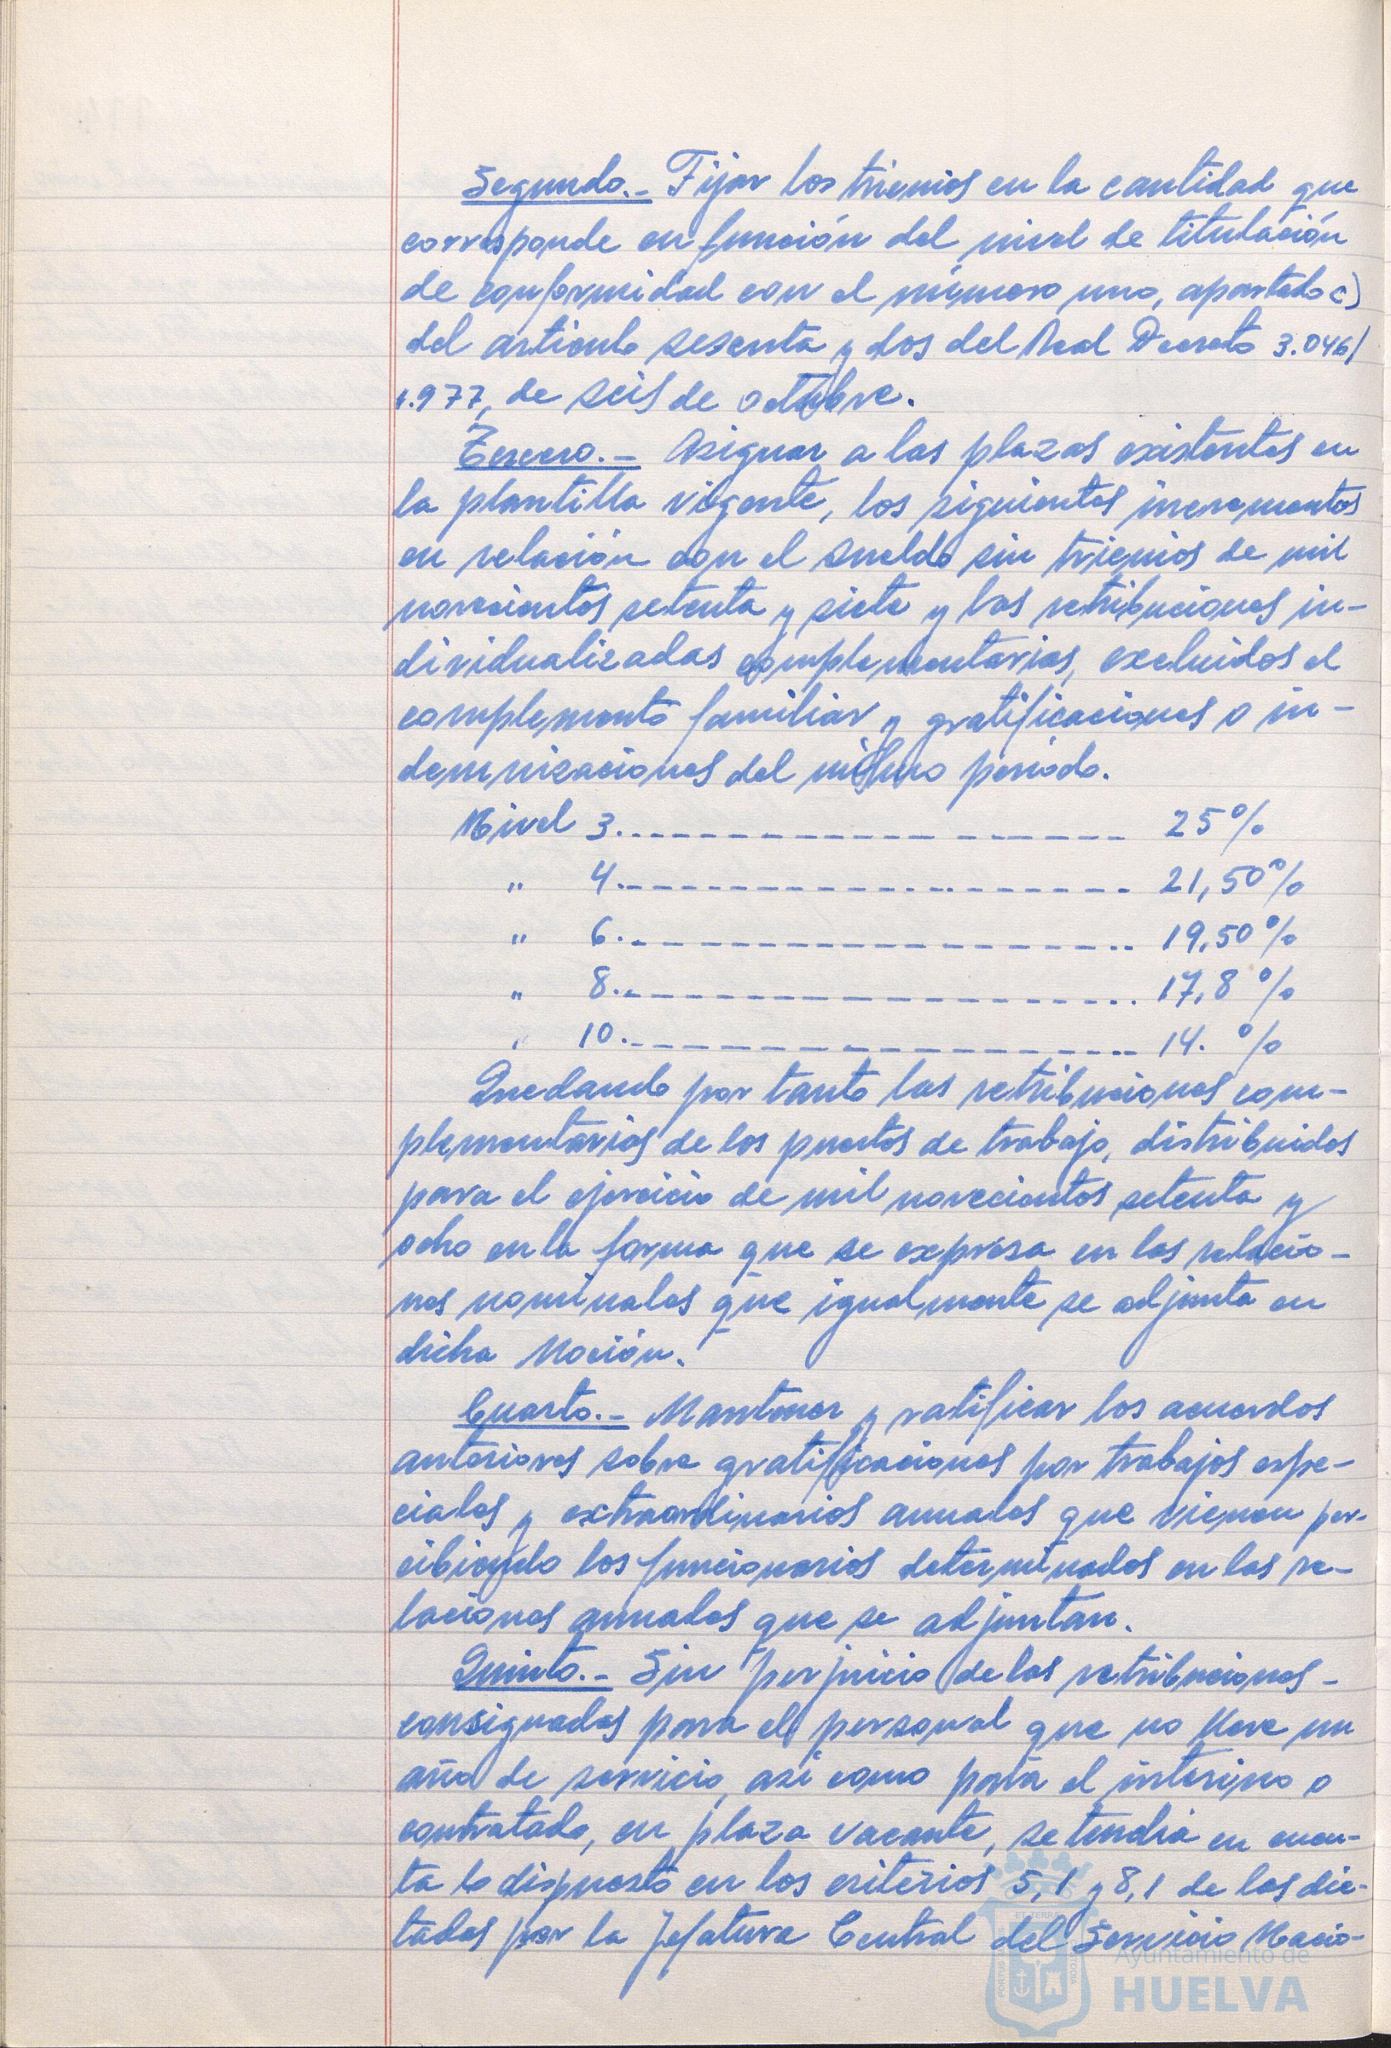 Segundo.- Fijar los trienios en la cantidad que
corresponde en función del nivel de titulación
de conformidad con el número uno, apartado c)
del artículo sesenta y dos del Real Decreto 3.046/
1.977, de seis de octubre.
Tercero.- Asignar a las plazas existentes en
la plantilla vigente, los siguientes incrementos
en relación con el sueldo sin trienios de mil
novecientos setenta y siete y las retribuciones in-
dividualizadas complementarias, excluidos el
complemento familiar y gratificaciones o in-
demnizaciones del mismo período.
Nivel 3. 25 %
" 4. 21,50 %
" 6. 19,50 %
" 8. 17,8 %
" 10. 14. %
Quedando por tanto las retribuciones com-
plementarias de los puestos de trabajo, distribuidos
para el ejercicio de mil novecientos setenta y
ocho en la forma que se expresa en las relacio-
nes nominales que igualmente se adjunta en
dicha Moción.
Cuarto.- Mantener y ratificar los acuerdos
anteriores sobre gratificaciones por trabajos espe-
ciales y extraordinarios anuales que vienen per-
cibiendo los funcionarios determinados en las re-
laciones anuales que se adjuntan.
Quinto.- Sin perjuicio de las retribuciones-
consignadas para el personal que no lleve un
año de servicio, así como para el interino o
contratado, en plaza vacante, se tendrá en cuen-
ta lo dispuesto en los criterios 5,1 y 8,1 de las dic-
tadas por la Jefatura Central del Servicio Nacio-
Ayuntamiento de
HUELVA